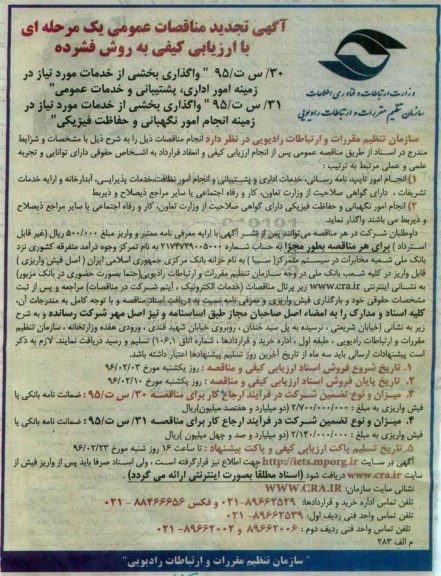 آگهی تجدید مناقصات عمومی یک مرحله ای
با ارزیابی کیفی به روش فشرده
۳۰/ س ت/۹۵ " واگذاری بخشی از خدمات مورد نیاز در
زمینه امور اداری، پشتیبانی و خدمات عمومی"
۳۱/ س ت/۹۵ " واگذاری بخشی از خدمات مورد نیاز در
زمینه انجام امور نگهبانی و حفاظت فیزیکی"
وزارت ارتباطات و فناوری اطلاعات
سازمان تنظیم مقررات و ارتباطات رادیویی
سازمان تنظیم مقررات و ارتباطات رادیویی در نظر دارد انجام مناقصات ذیل را به شرح ذیل با مشخصات و شرایط
مندرج در اسناد از طریق مناقصه عمومی پس از انجام ارزیابی کیفی و انعقاد قرارداد به اشخاص حقوقی دارای توانایی و تجربه
علمی و عملی مرتبط به ترتیب :
۱) انجام امور تایپ، نامه رسانی، خدمات اداری و پشتیبانی و انجام امور نظافت، خدمات پذیرایی، آبدارخانه و ارایه خدمات
تشریفات ، دارای گواهی صلاحیت از وزارت تعاون، کار و رفاه اجتماعی یا سایر مراجع ذیصلاح و ذیربط
۲) انجام امور نگهبانی و حفاظت فیزیکی دارای گواهی صلاحیت از وزارت تعاون، کار و رفاه اجتماعی یا سایر مراجع ذیصلاح
و ذیربط می باشند واگذار نماید.
داوطلبان شرکت در هر مناقصه می توانند پس از نشر آگهی با ارایه معرفی نامه معتبر و واریز مبلغ ۵۰۰/۰۰۰ ریال (غیر قابل
استرداد ) برای هر مناقصه بطور مجزا به حساب شماره ۲۱۷۴۷۲۹۰۰۵۰۰۰ به نام تمرکز وجوه درآمد متفرقه کشوری نزد
بانک ملی شعبه مخابرات در سیستم متمرکز( سیبا ) به نام خزانه بانک مرکزی جمهوری اسلامی ایران ( اصل فیش واریزی )
قابل واریز در کلیه شعب بانک ملی در وجه سازمان تنظیم مقررات و ارتباطات رادیویی(حتما بصورت حضوری در بانک مزبور)
به نشانی اینترنتی www.cra.ir زیر پرتال مناقصات (خدمات الکترونیک ، آیتم شرکت در مناقصات) مراجعه و پس از ثبت
مشخصات حقوقی خود و بارگذاری فیش واریزی و معرفی نامه نسبت به دریافت اسناد مناقصه و با توجه کامل به مندرجات آن،
کلیه اسناد و مدارک را به امضاء اصل صاحبان مجاز طبق اساسنامه و نیز اصل مهر شرکت رسانده و به شرح
زیر به نشانی (خیابان شریعتی ، نرسیده به پل سید خندان ، روبروی خیابان شهید قندی ، ورودی هفده وزارتخانه ، سازمان تنظیم
مقررات و ارتباطات رادیویی ، طبقه اول ، اداره خرید و قراردادها ، شماره اتاق ۱۰۶,۱) تسلیم و رسید دریافت نمایند. لازم به ذکر
است پیشنهادات ارسالی باید سه ماه از تاریخ آخرین روز تسلیم پیشنهادها اعتبار داشته باشد.
۱. تاریخ شروع فروش اسناد ارزیابی کیفی و مناقصه : روز یکشنبه مورخ ۹۶/۰۲/۰۳
۲. تاریخ پایان فروش اسناد ارزیابی کیفی و مناقصه : روز یکشنبه مورخ ۹۶/۰۲/۱۰
۳. میزان و نوع تضمین شرکت در فرآیند ارجاع کار برای مناقصه ۳۰/ س ت/۹۵ : ضمانت نامه بانکی یا
فیش واریزی به مبلغ : ۲/۷۰۰/۰۰۰/۰۰۰ (دو میلیارد و هفتصد میلیون)ریال
۴. میزان و نوع تضمین شرکت در فرآیند ارجاع کار برای مناقصه ۳۱/ س ت/۹۵: ضمانت نامه بانکی یا
فیش واریزی به مبلغ : ۲/۱۴۰/۰۰۰/۰۰۰ (دو میلیارد و صد و چهل میلیون )ریال
۵. تاریخ تسلیم پاکت ارزیابی کیفی و پاکت پیشنهاد : تا ساعت ۱۶ روز شنبه مورخ ۹۶/۰۲/۲۳
آگهی در سایت http://iets.mporg.ir جهت اطلاع نیز قرارگرفته است ، ولی اسناد صرفا باید پس از واریز فیش از
سایت www.cra.ir دریافت شود (اسناد مطلقا بصورت اینترنتی ارائه می گردد)
نشانی سایت سازمان: WWW.CRA.IR
تلفن تماس اداره خرید و قراردادها: ۸۹۶۶۲۵۲۹-۰۲۱ و فکس ۸۸۴۶۶۶۵۶ - ۰۲۱
تلفن تماس واحد فنی ردیف اول: ۸۹۶۶۲۵۳۹-۰۲۱
تلفن تماس واحد فنی ردیف دوم : ۸۹۶۶۲۰۰۶ و ۸۹۶۶۲۰۰۲-۰۲۱
م الف ۲۸۳
" سازمان تنظیم مقررات و ارتباطات رادیویی "